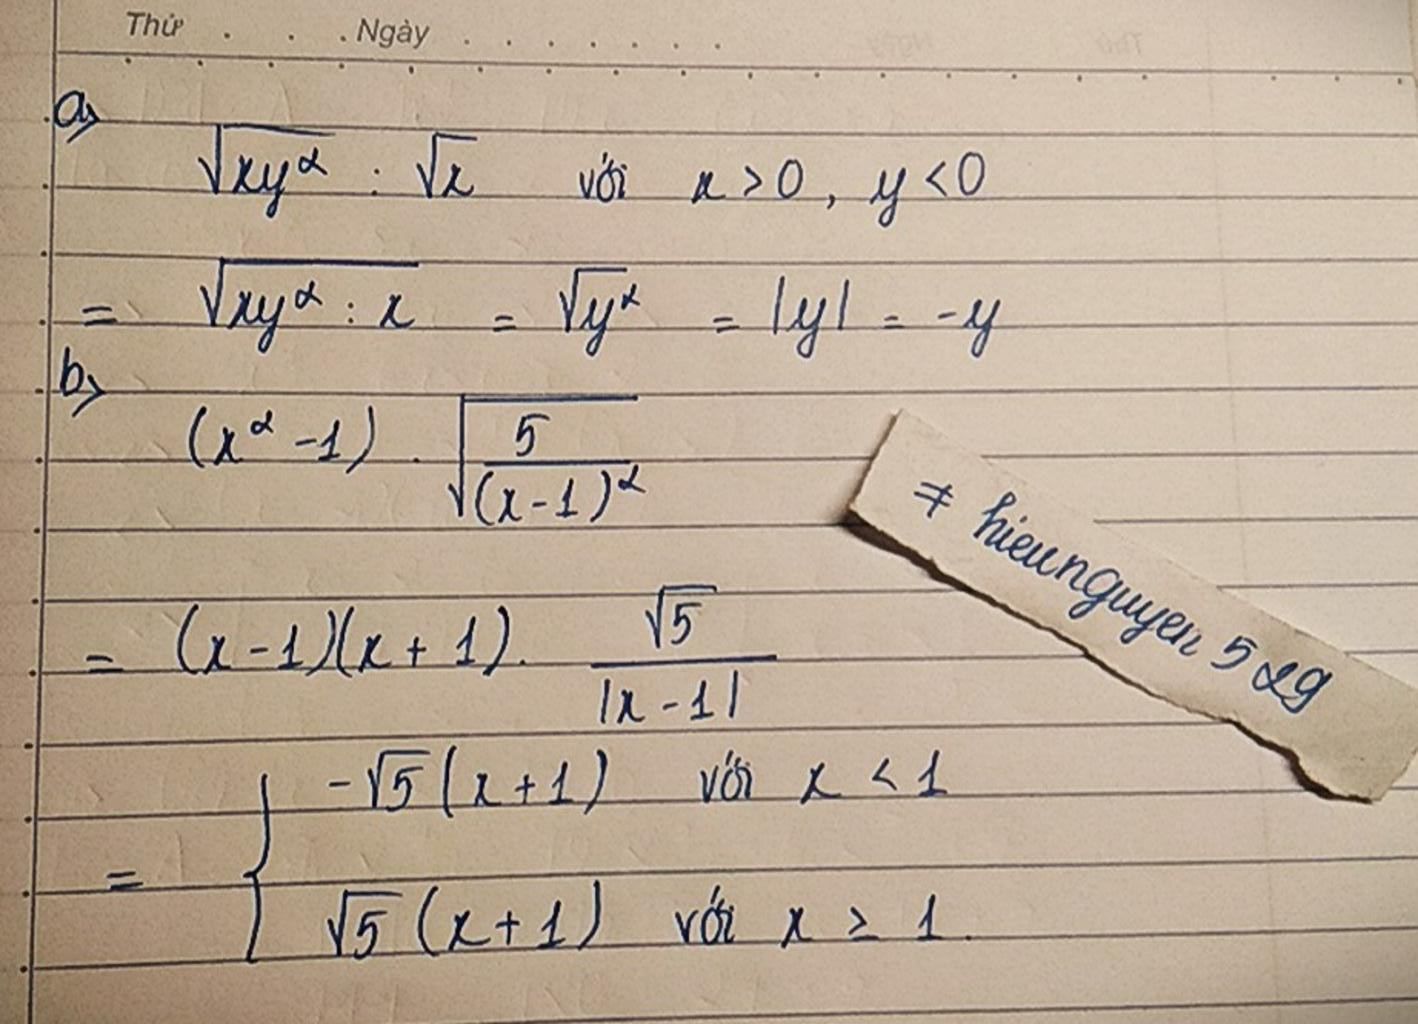 Thứ . . . Ngày . . . . . . .
a>
√xy² : √x với x > 0 , y < 0
= √xy² : x = √y² = |y| = -y
b>
(x² - 1) . √5/(x - 1)²
= (x - 1)(x + 1) . √5/|x - 1|
= { -√5 (x + 1) với x < 1
√5 (x + 1) với x ≥ 1.
hieunguyen 529